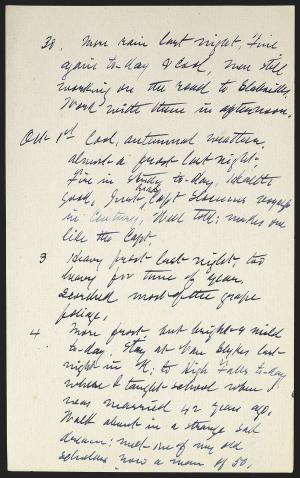 30. More rain last night. Fine
again to-day & cool, men still
working on the road to Slabsides.
Work with them in afternoon.
Oct 1st Cool, autumnal weather,
almost a frost last night.
Fire in study to-day. Health
good. Great Capt Slocums voyage
in Century, Well told; makes one
like the Capt.
3 Heavy frost last night too
heavy for time of year.
Scorched most of the grape
foliage.
4 More frost but bright & mild
to-day. Stay at Van Slykes last
night in K; to High Falls to-day
where I taught school when I
was married 42 years ago.
Walk about in a strange sad
dream; met one of my old
scholars now a man of 50.